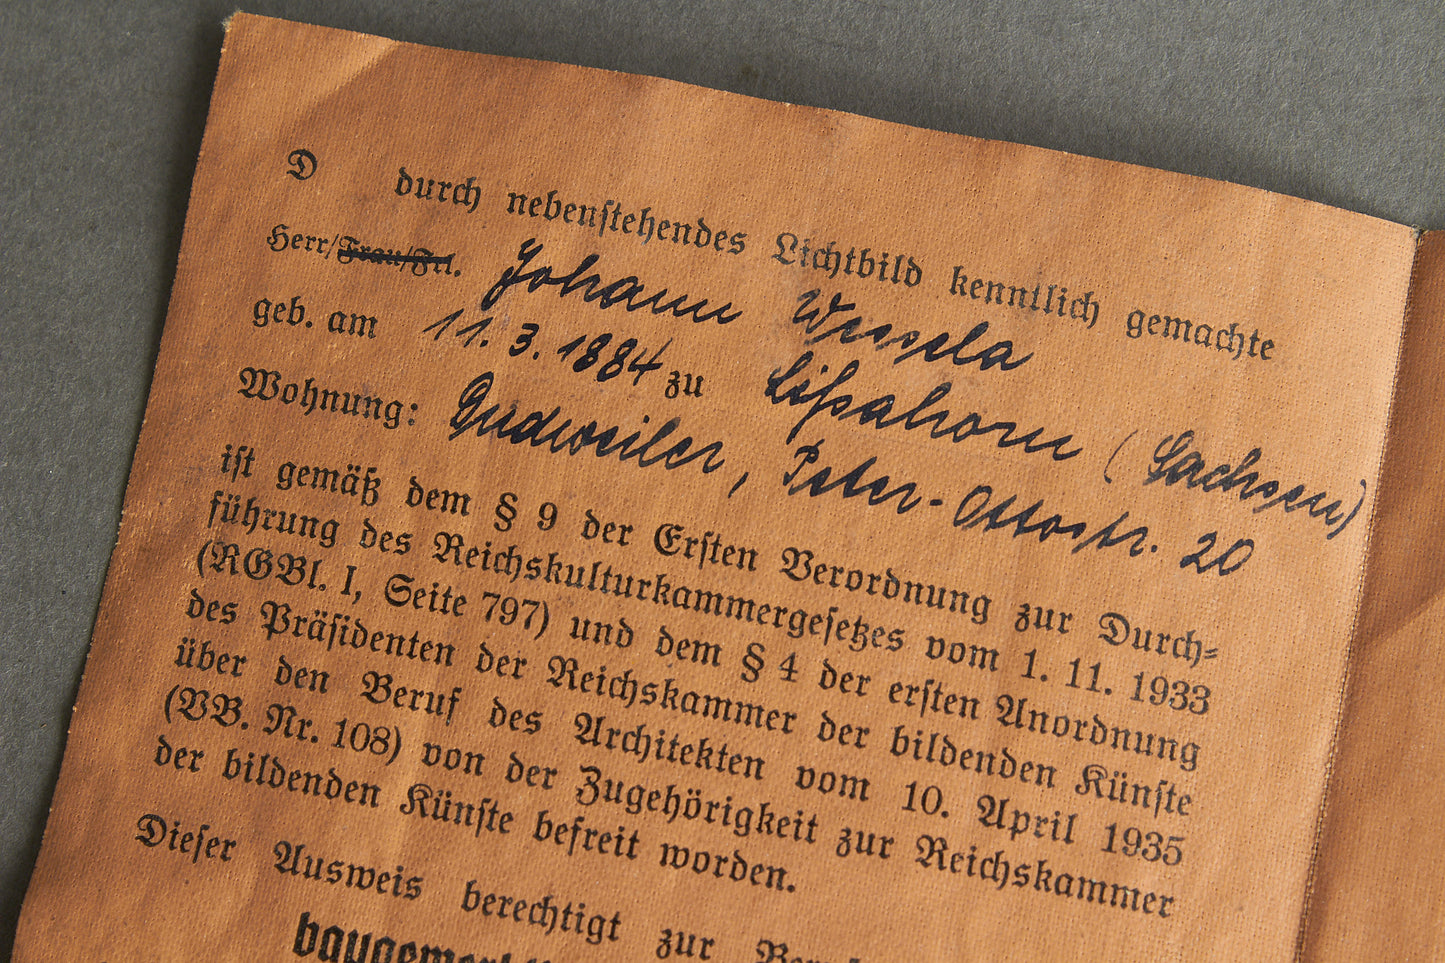 D durch nebenstehendes Lichtbild kenntlich gemachte
Herr/Frau/Frl. Johann Wessela
geb. am 11.3.1884 zu (Sachsen)
Wohnung: Peter-Ottostr. 20
ist gemäß dem § 9 der Ersten Verordnung zur Durch-
führung des Reichskulturkammergesetzes vom 1. 11. 1933
(RGBl. I, Seite 797) und dem § 4 der ersten Anordnung
des Präsidenten der Reichskammer der bildenden Künste
über den Beruf des Architekten vom 10. April 1935
(VB. Nr. 108) von der Zugehörigkeit zur Reichskammer
der bildenden Künste befreit worden.
Dieser Ausweis berechtigt zur